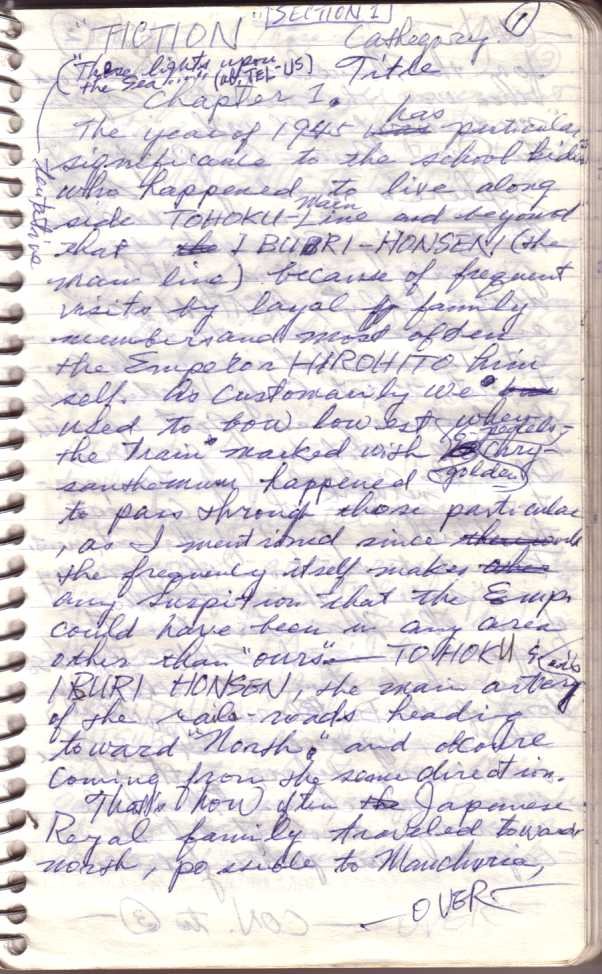 [SECTION 1] 1
"FICTION" Cathegory
("There lights upon Title
the sea...." (ab. TEL-US)
Chapter 1.
Tentative
The year of 1945 has particular
significance to the school kids
who happened to live along
side TOHOKU-Main Line and beyond
that IBURI-HONSEN, (the
main line) because of frequent
visits by loyal family
members and most often
the Emperor HIROHITO him
self. As customarily we
used to bow lowest when
the "train" marked with 16 petals-
(golden) Chry-
santhemum happened
to pass through those particular
, as I mentioned since
the frequency itself makes
any suspition that the Emp.
could have been in any area
other than "ours" — TOHOKU &
IBURI HONSEN, the main artery
of the rails-roads heading
toward "North," and ofcourse
coming from the same direction.
That's how often Japanese
Royal family traveled toward
north, possible to Manchuria,
— OVER —